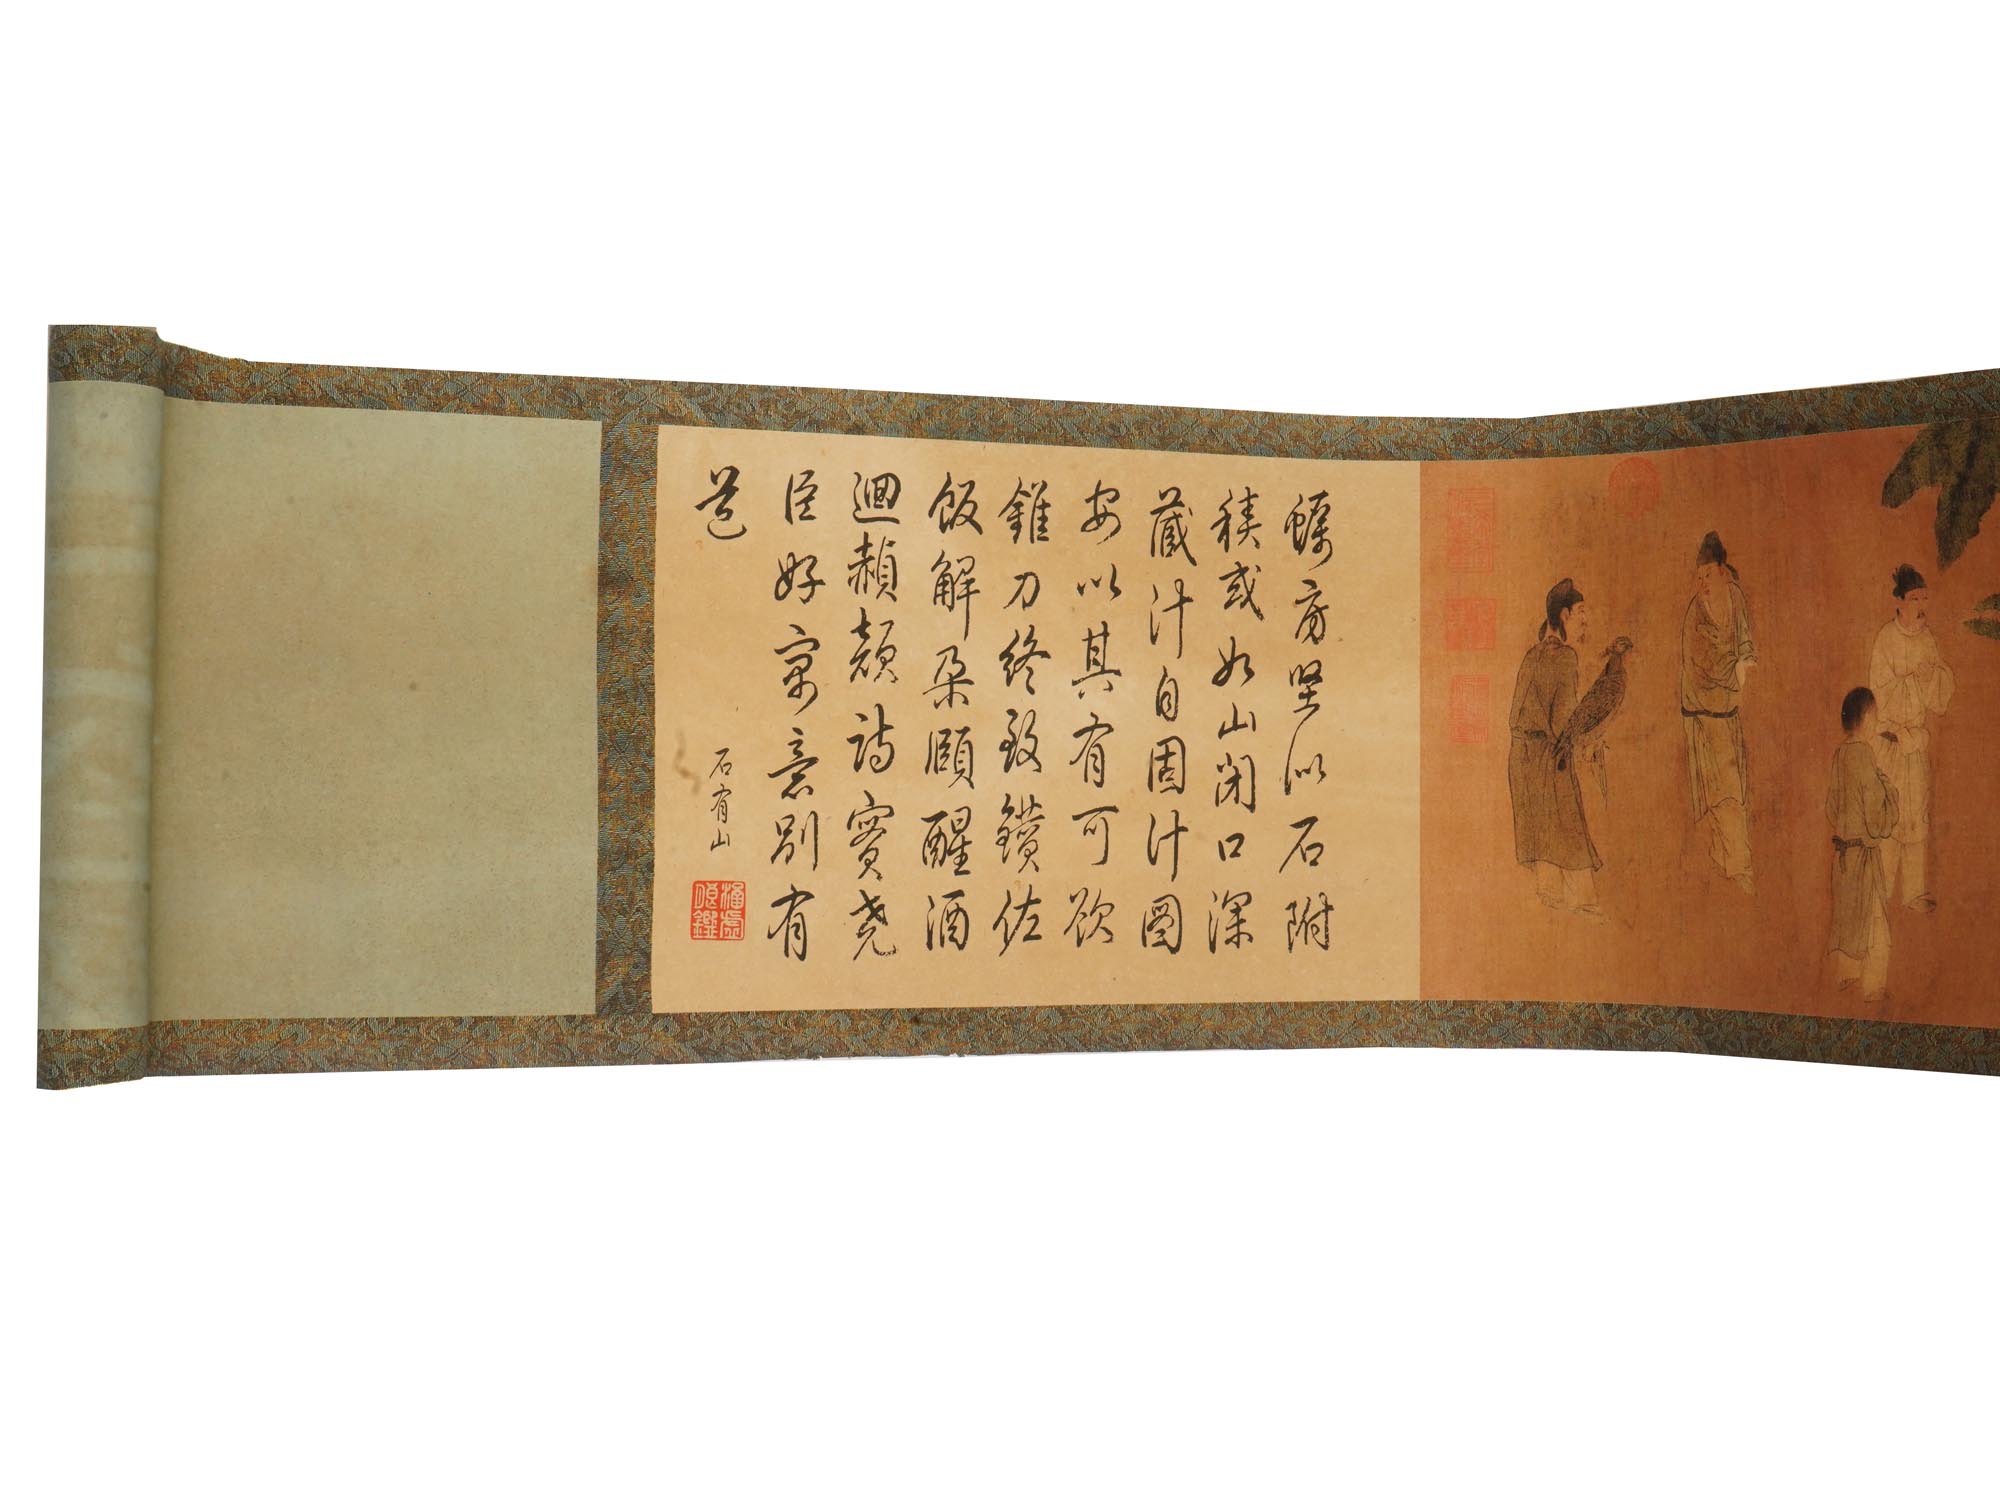 蠣房堅似石附
積或如山閉口深
藏汁自固汁圖
安以其有可欲
錐刀終致鑽佐
飯解朶頤醒酒
迴赬顏詩賓堯
臣好寓意別有
芑
石有山